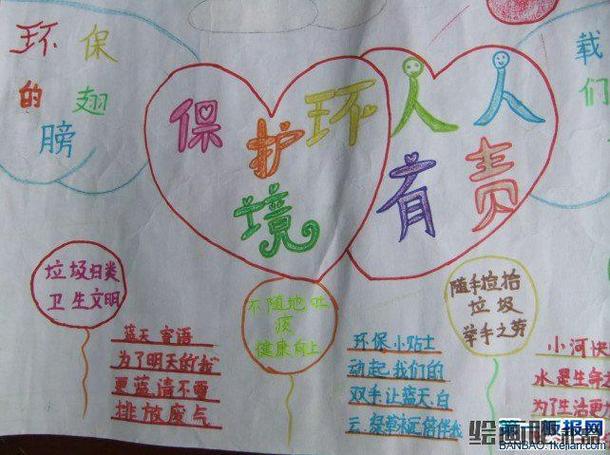 环保
的翅
膀
保护环
境
人人
有责
载
们
垃圾归类
卫生文明
不随地吐
痰
健康向上
随手捡拾
垃圾
举手之劳
蓝天寄语
为了明天的
更蓝,请不要
排放废气
环保小贴士
动起我们的
双手让蓝天白
云,
小河快
水是生命
为了生活更
BANBAO.fkejian.com